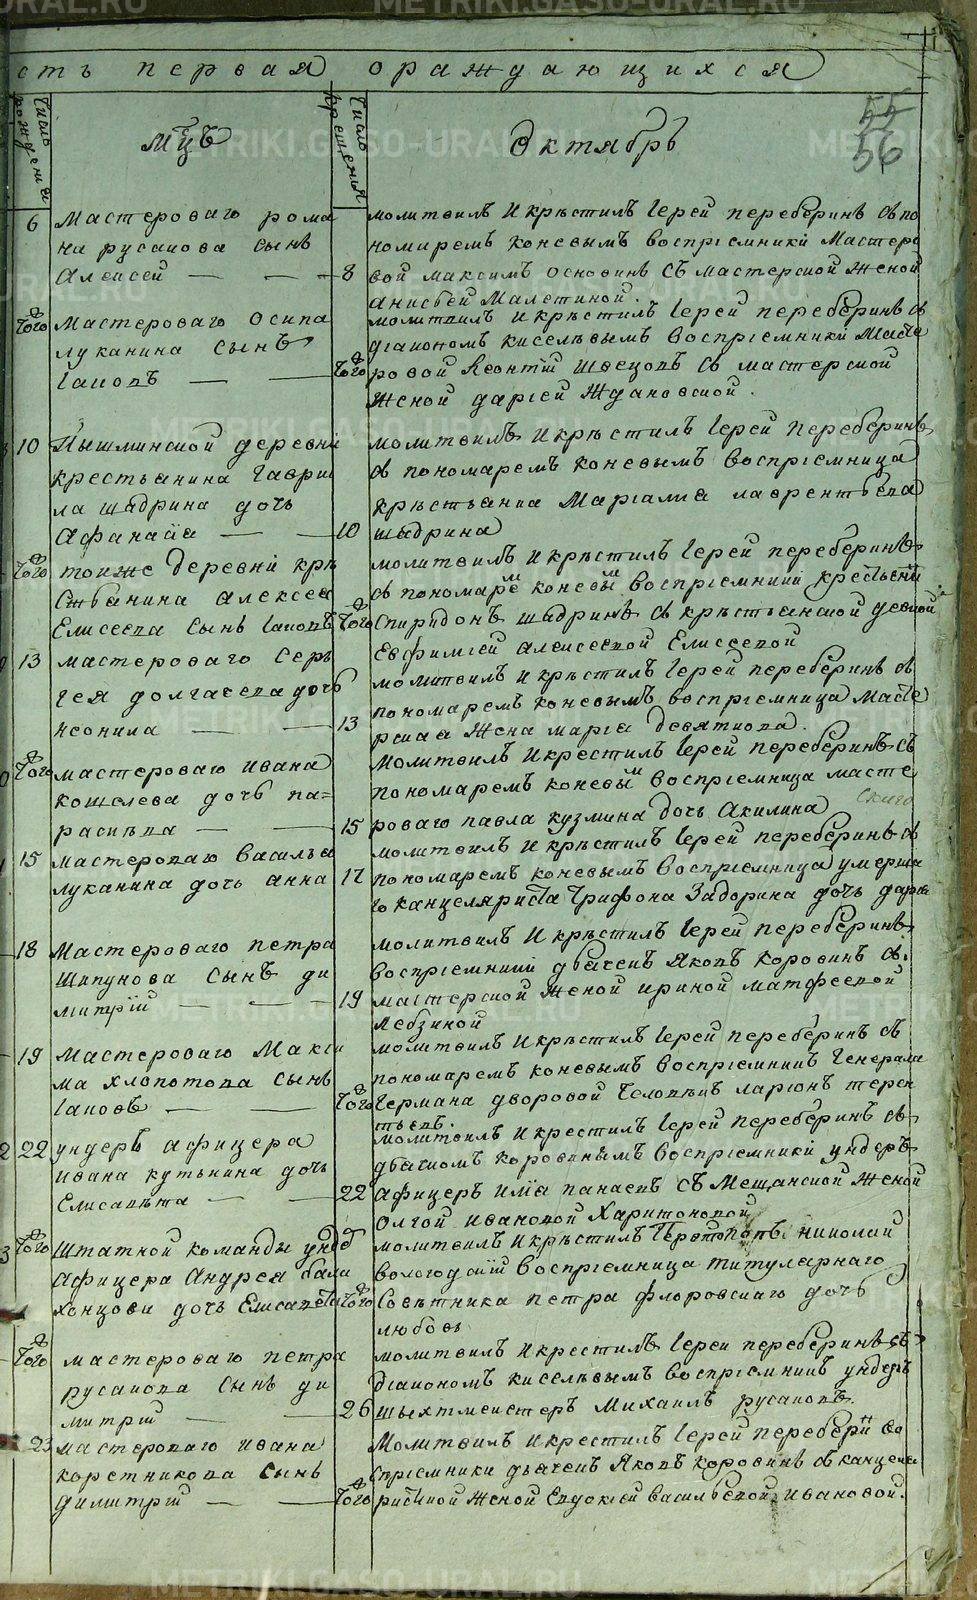 сть первая ораждающихся
число рождения
мцъ
число крещения
Октябръ
55
56
6 Мастероваго рома
на русакова сынъ
Алексей
молитвилъ и крѣстилъ Іерей переберинъ съ по
номиремъ коневымъ воспрiемники Мастеро
8 вой максимъ основинъ съ мастерской женой
анисьей Малетиной.
того Мастероваго Осипа
луканина сынъ
Iаковъ
молитвилъ и крѣстилъ Іерей переберинъ съ
дiакономъ киселевымъ воспрiемники Масте
того ровой Леонтiй швецовъ съ мастерской
Женой дарiей Ждановской.
10 Пышминской деревни
крестьянина гаври
ла шадрина дочь
Афанасiа
молитвилъ и крѣстилъ Іерей переберинъ
съ пономаремъ коневымъ воспрiемница
крѣстьянка Марiамна лаврентьева
10 шадрина
того тоиже деревни крѣ
стьянина алексеа
Елисеева сынъ Iаковъ
молитвилъ и крѣстилъ Іерей переберинъ
съ пономаремъ коневымъ воспрiемники крестьяни
того Спиридонъ шадринъ съ крѣстьянской девкой
Евфимiей алексеевой Елисеевой
13 мастероваго Сер
гея долгачева дочь
неонила
молитвилъ и крѣстилъ Іерей переберинъ съ
пономаремъ коневымъ воспрiемница Масте
13 рская Жена марiа девяткова.
того мастероваго ивана
кошелева дочь па=
расковьа
Молитвилъ и крестилъ Іерей переберинъ съ
пономаремъ коневымъ воспрiемница масте
15 роваго павла кузмина дочь Акилина
15 мастероваго василья
луканина дочь анна
молитвилъ и крѣстилъ Іерей переберинъ съ
17 пономаремъ коневымъ воспрiемница умерша
го канцеляриста трифона Задорина дочь дарья
18 Мастероваго петра
Шипунова сынъ ди
митрiй
молитвилъ и крѣстилъ Іерей переберинъ
воспрiемники дьячекъ Яковъ коровинъ съ
19 мастерской женой ириной матфеевой
Лебзиной
19 Мастероваго Макси
ма хлопотова сынъ
Iаковъ
молитвилъ и крѣстилъ Іерей переберинъ съ
пономаремъ коневымъ воспрiемникъ Генерала
того Германа дворовой человѣкъ ларiонъ терен
тьевъ.
22 ундеръ афицера
ивана кутькина дочь
Елисавѣта
молитвилъ и крестилъ Іерей переберинъ съ
дьячкомъ коровинымъ воспрiемники ундеръ
22 афицеръ илiа панаевъ съ Мещанской женой
Олгой ивановой Харитоновой
того Штатной команды ундеръ
афицера Андрея бала
хонцова дочь Елисавета
молитвилъ и крѣстилъ Протопопъ николай
вологодскiй воспрiемница титулярнаго
того Советника петра флоровскаго дочь
любовь
того мастероваго петра
русакова сынъ ди
митрiй
молитвилъ и крестилъ Іерей переберинъ съ
дiакономъ киселевымъ воспрiемникъ ундеръ
26 шыхтмеистеръ Михаилъ русаковъ.
23 мастероваго ивана
коростникова сынъ
димитрiй
Молитвилъ и крестилъ Іерей переберинъ во
спрiемники дьячекъ Яковъ коровинъ съ канцеля
того ристкой женой Евдокiей васильевой ивановой.
METRIKI.GASO-URAL.RU